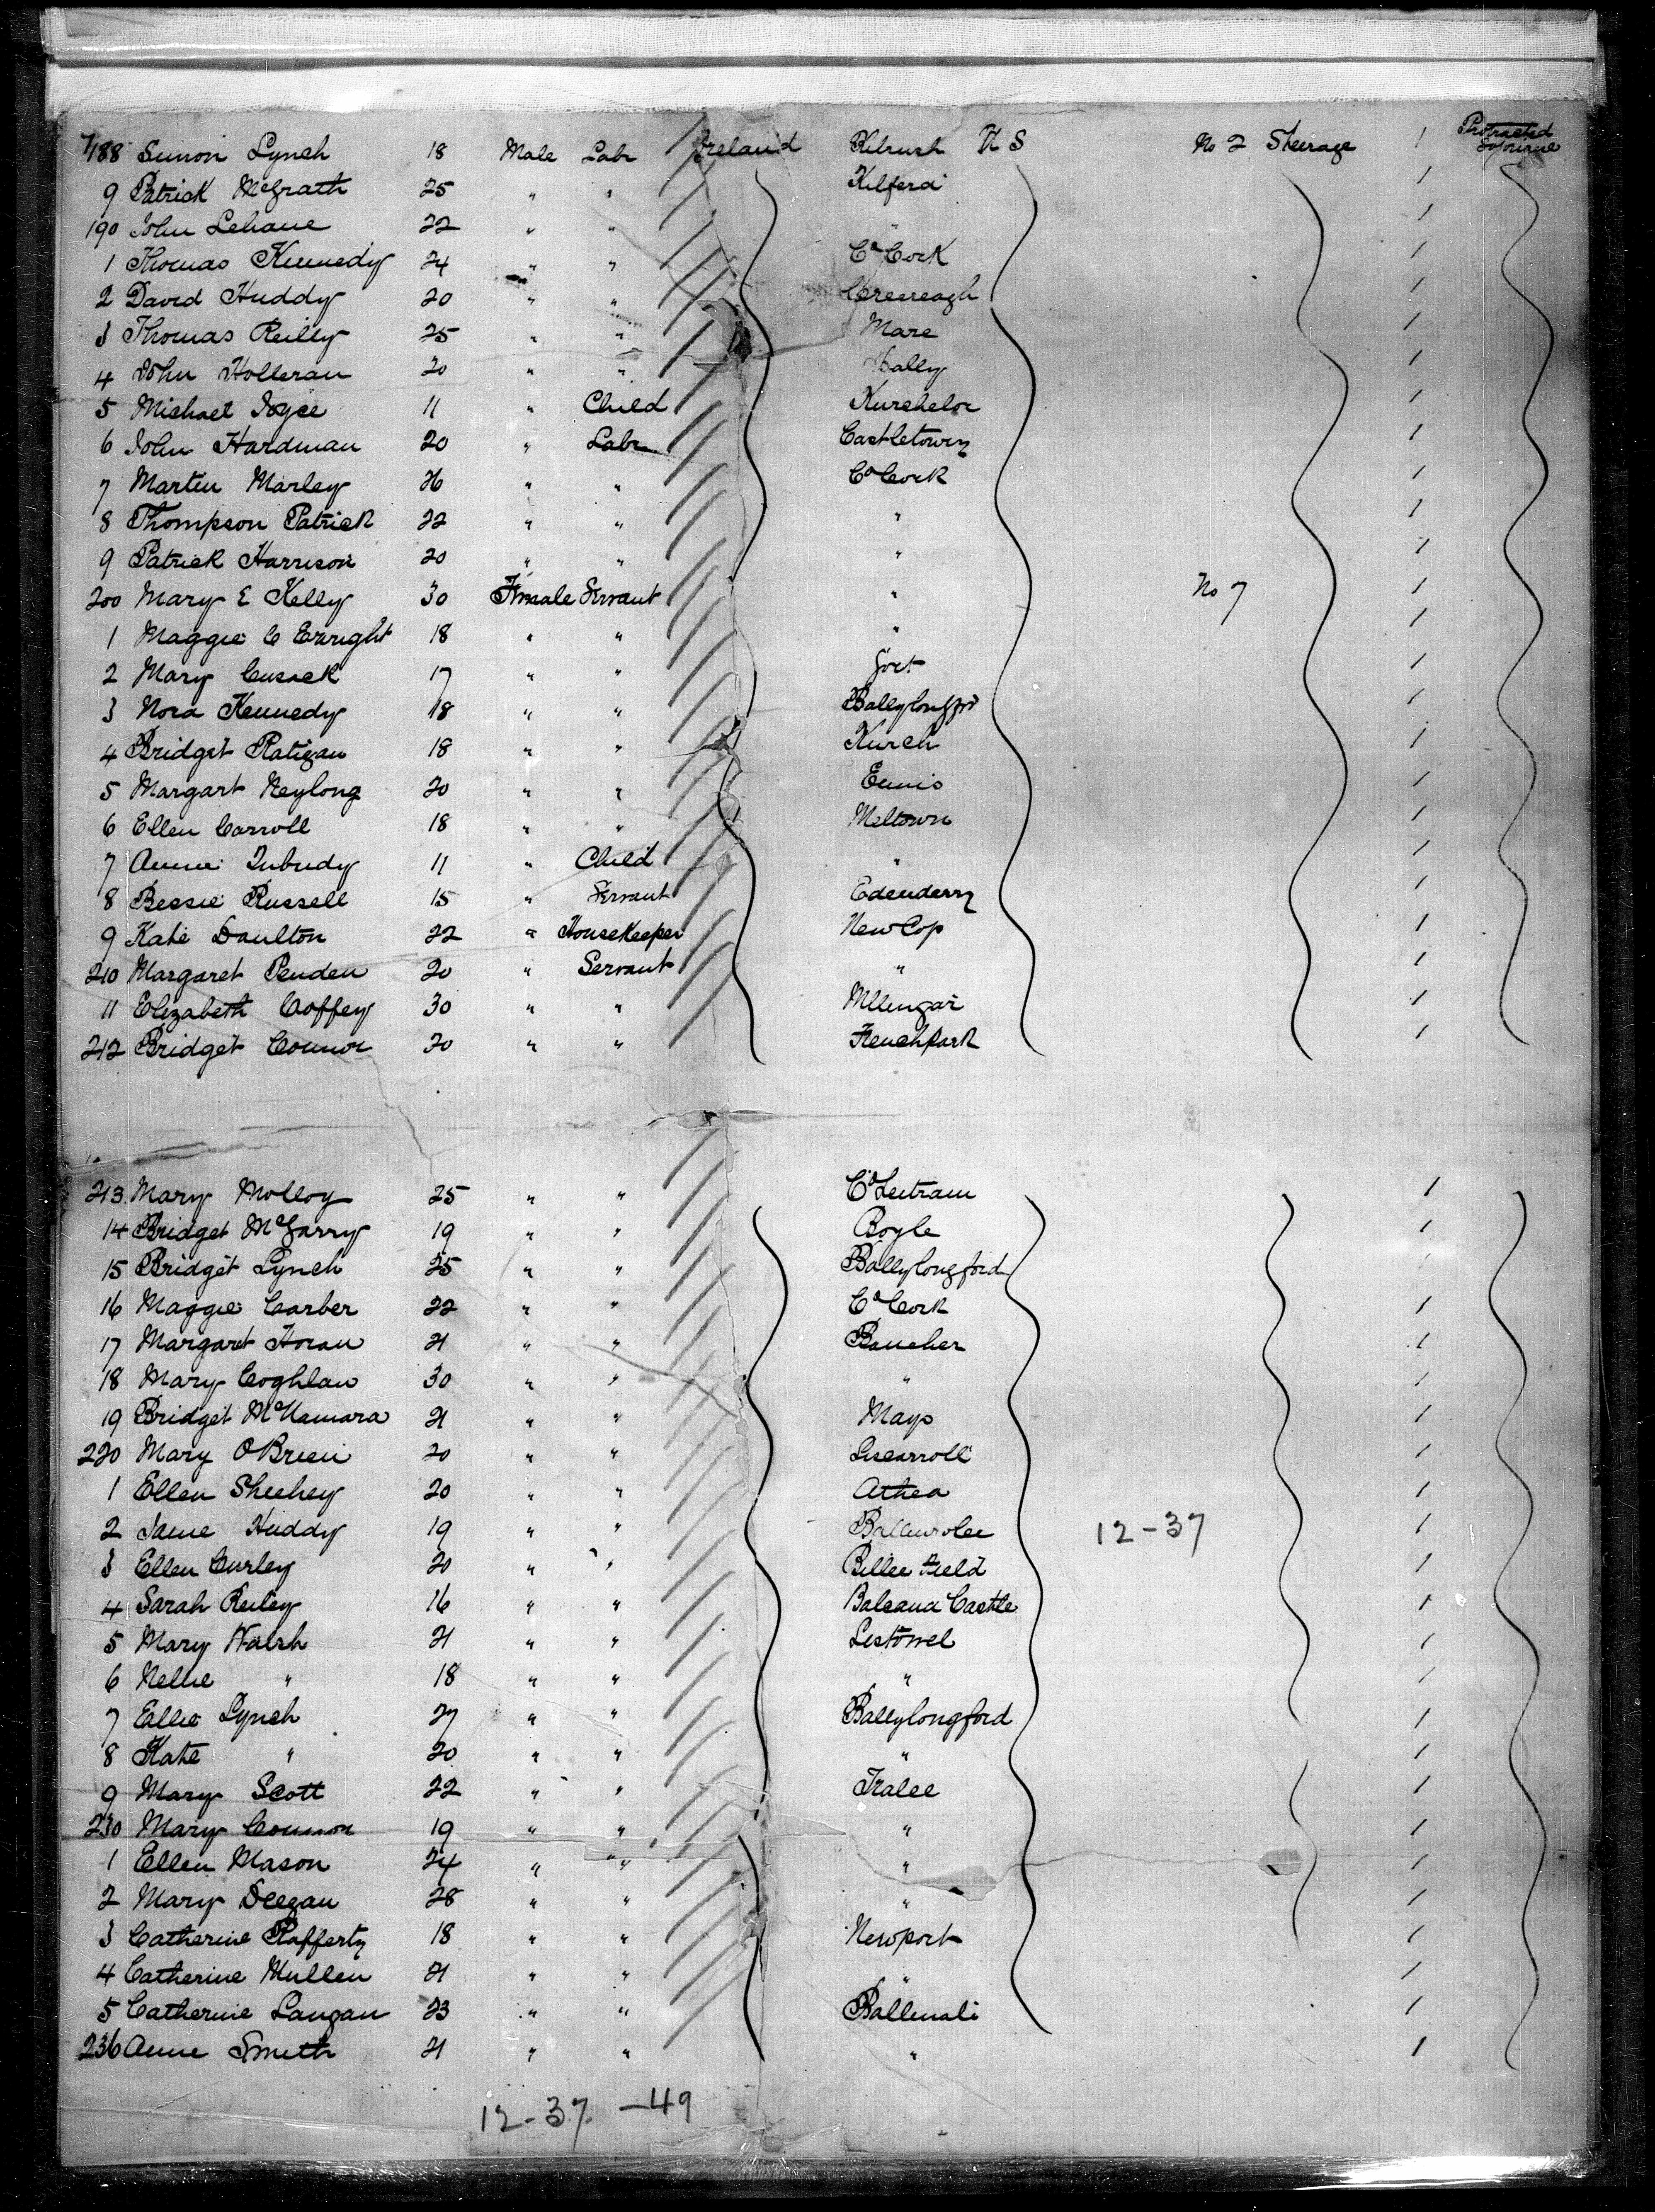 188 Simon Lynch 18 Male Labr Ireland Kilrush U S No 2 Steerage 1 Protracted Sojourne
9 Patrick McGrath 25 " " Kilferd 1
190 John Lehane 22 " " " 1
1 Thomas Kennedy 24 " " Co Cork 1
2 David Huddy 20 " " 1
3 Thomas Reilly 25 " " Mare 1
4 John Holleran 20 " " Bally 1
5 Michael Joyce 11 " Child 1
6 John Hardman 20 " Labr Castletown 1
7 Martin Marley 26 " " Co Cork 1
8 Thompson Patrick 22 " " " 1
9 Patrick Harrison 20 " " " 1
200 Mary E Kelly 30 Female Servant " No 7 1
1 Maggie C Enright 18 " " " 1
2 Mary Cusack 17 " " Gort 1
3 Nora Kennedy 18 " " Ballylongfor 1
4 Bridget Ratigan 18 " " Kurch 1
5 Margart Neylong 20 " " Ennis 1
6 Ellen Carroll 18 " " Meltown 1
7 Annie Tubudy 11 " Child " 1
8 Bessie Russell 15 " Servant Edenderry 1
9 Katie Daulton 22 " HouseKeeper New Cop 1
210 Margaret Penden 20 " Servant " 1
11 Elizabeth Coffey 30 " " Mllengar 1
212 Bridget Connor 20 " " Frenchpark 1
213 Mary Molloy 25 " " Co Leitram 1
14 Bridget McGarry 19 " " Boyle 1
15 Bridget Lynch 25 " " Ballylongford
16 Maggie Carber 22 " " Co Cork 1
17 Margaret Horan 21 " " Bancher 1
18 Mary Coghlan 30 " " " 1
19 Bridget McNamara 21 " " Mayo 1
220 Mary OBrien 20 " " Liscarroll 1
1 Ellen Sheehey 20 " " Athea 1
2 Jane Huddy 19 " " 12-37 1
3 Ellen Curley 20 " " Billee Field 1
4 Sarah Reiley 16 " " Balcana Castle 1
5 Mary Walsh 21 " " Listowel 1
6 Nellie " 18 " " " 1
7 Ellie Lynch 27 " " Ballylongford 1
8 Kate " 20 " " " 1
9 Mary Scott 22 " " Tralee 1
230 Mary Connor 19 " " " 1
1 Ellen Mason 24 " " " 1
2 Mary Deegan 28 " " " 1
3 Catherine Rafferty 18 " " Newport 1
4 Catherine Mullen 21 " " " 1
5 Catherine Langan 23 " " Ballinali 1
236 Anne Smith 21 " " " 1
12-37 -49